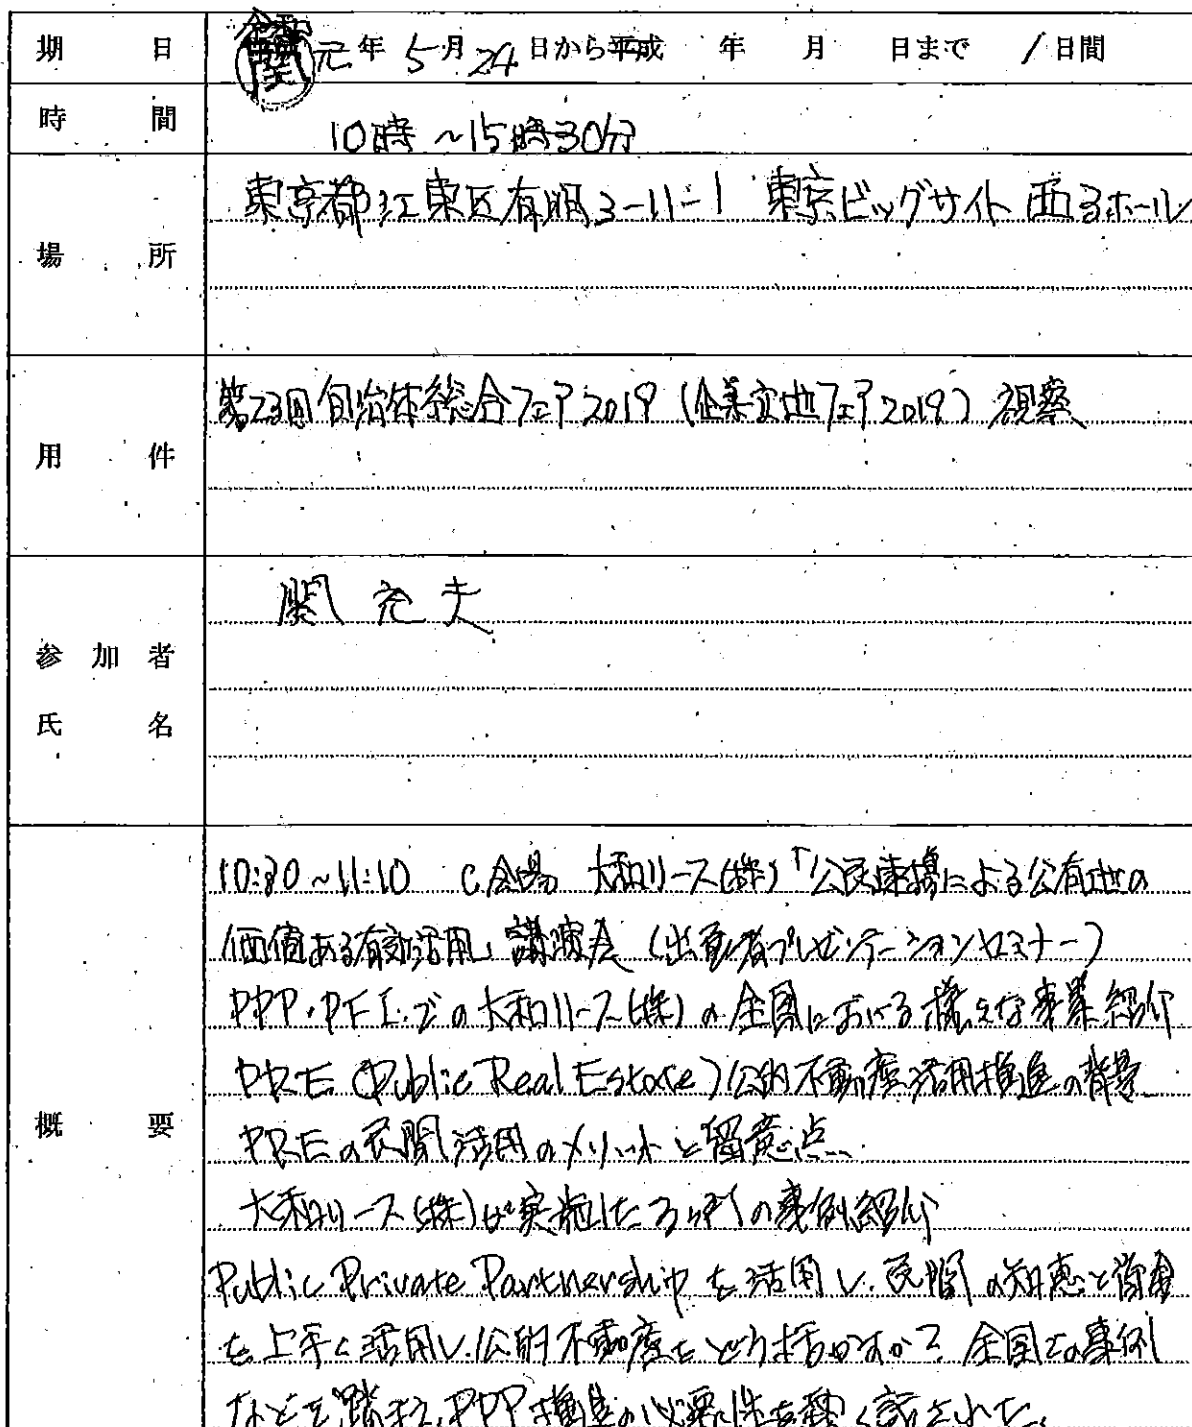 期日 元年 5月 24日から平成 年 月 日まで 1日間
時間 10時～15時30分
場所 東京都江東区有明3-11-1 東京ビッグサイト 西3ホール
用件 第23回自治体総合フェア2019（企業立地フェア2019）視察
参加者氏名 関 充夫
概要
10:30～11:10 C会場 大和リース(株)「公民連携による公有地の
価値ある有効活用」講演会（出展者プレゼンテーションセミナー）
PPP・PFIでの大和リース(株)の全国における様々な事業紹介
PRE（Public Real Estate）公的不動産活用推進の背景
PREの民間活用のメリットと留意点
大和リース(株)が実施した3ヶ所の事例紹介
Public Private Partnershipを活用し、民間の知恵と資金
を上手く活用し、公的不動産をどう活かすか？全国での事例
などを踏まえ、PPP推進の必要性を熱く語された。